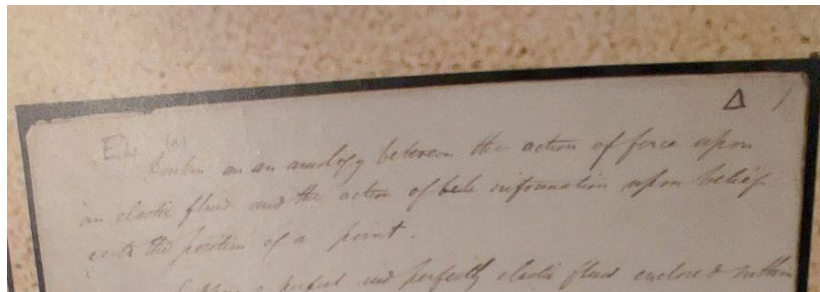 Δ 1
on an analogy between the action of force upon
an elastic fluid and the action of information upon belief
as to the position of a point.
a perfect and perfectly elastic fluid enclosed within